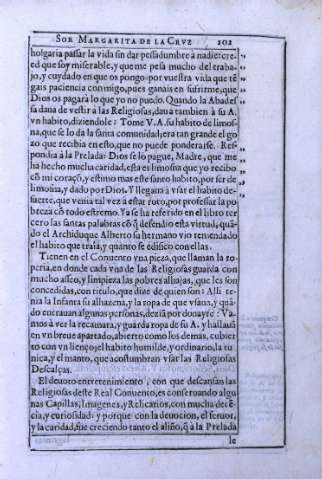 SOR MARGARITA DE LA CRVZ 202
holgaria passar la vida sin dar pesadumbre à nadie: cre-
ed que soy miserable, y que me pesa mucho del traba-
jo, y cuydado en que os pongo: por vuestra vida que tē
gais paciencia con migo, pues ganais en sufrirme, que
Dios os pagarà lo que yo no puedo. Quando la Abades
sa daua de vestir à las Religiosas, daua tambien à su A.
vn habito, diziendole: Tome V. A. su habito de limos-
na, que se lo da la santa comunidad; era tan grande el go
zo que recibia en esto, que no puede ponderarse. Res-
pondia à la Prelada: Dios se lo pague, Madre, que me
ha hecho mucha caridad, esta es limosna que yo recibo
cō mi coraçō, y estimo mas este santo habito, por ser de
limosna, y dado por Dios. Y llegaua à vsar el habito de-
suerte, que venia tal vez à estar roto, por professar la po
breza cō todo estremo. Ya se ha referido en el libro ter
cero las santas palabras cō q̃ defendio esta virtud, quā-
do el Archiduque Alberto su hermano vio remendado
el habito que traìa, y quanto se edificò con ellas.
Tienen en el Conuento vna pieza, que llaman la ro-
peria, en donde cada vna de las Religiosas guarda con
mucho asseo, y limpieza las pobres alhajas, que les son
concedidas, con titulo, que dize de quien son: Alli te-
nia la Infanta su alhazena, y la ropa de que vsaua, y quā-
do entrauan algunas personas, dezia por donayre: Va-
mos à ver la recamara, y guarda ropa de su A. y hallauā
en vn breue apartado, abierto como los demas, cubier
to con vn lienço; el habito humilde, y ordinario, la tu-
nica, y el manto, que acostumbran vsar las Religiosas
Descalças.
El deuoto entretenimiento, con que descansan las
Religiosas deste Real Conuento, es conseruando algu
nas Capillas, Imagenes, y Relicarios, con mucha decē-
cia, y curiosidad: y porque con la deuocion, el feruor,
y la caridad, fue creciendo tanto el aliño, q̃ à la Prelada
le